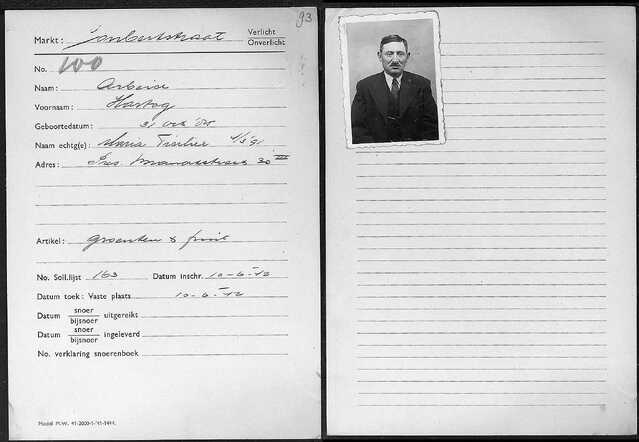 93
Markt: Joubertstraat Verlicht
Onverlicht
No. 100
Naam: Arbeise
Voornaam: Hartog
Geboortedatum: 31 Oct '85
Naam echtg(e): Maria Fischer 1/3 '91
Adres: Pres Brandstraat 30 III
Artikel: groenten & fruit
No. Soll.lijst 163 Datum inschr. 10-6-'12
Datum toek: Vaste plaats 10-6-'12
Datum snoer
bijsnoer uitgereikt
Datum snoer
bijsnoer ingeleverd
No. verklaring snoerenboek
Model M.W. 41-2000-1-'41-1444.